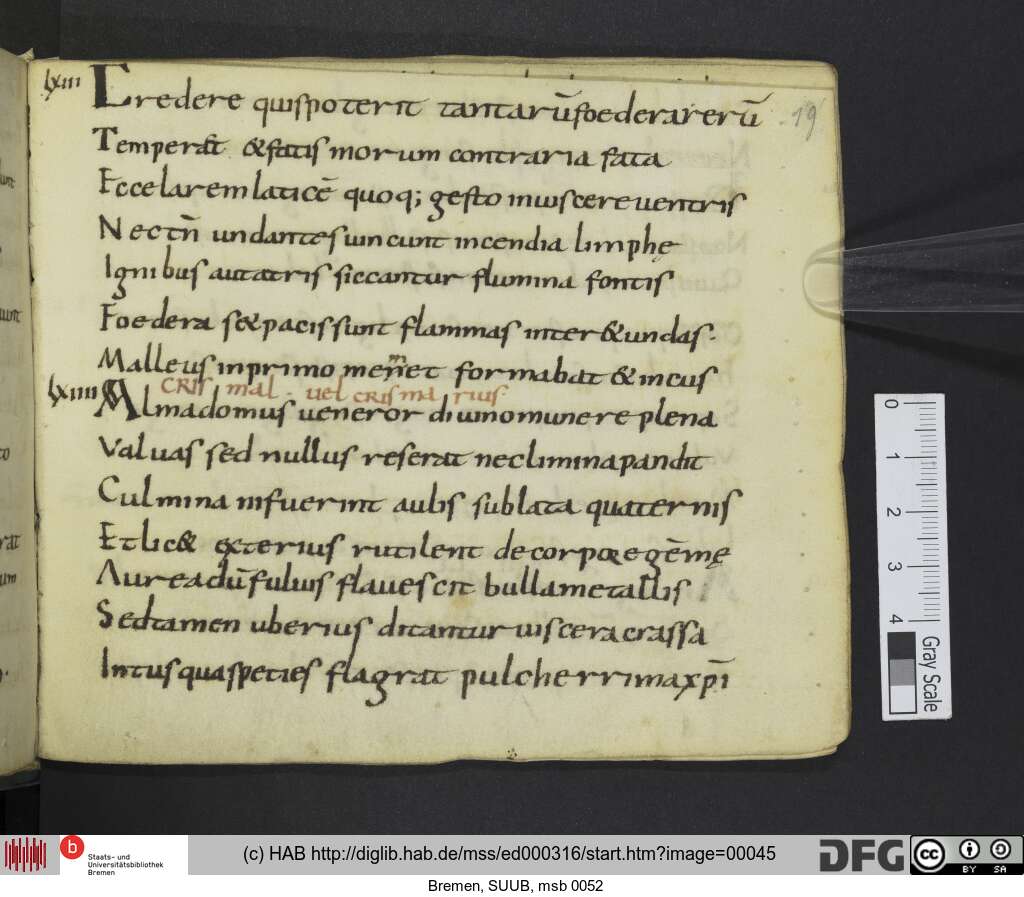 lxiii Credere quis poterit tantarū foedera rerū
19
Temperāt & fatis morum contraria fata
Ecce larem laticē quoq; gesto in uiscere uentris
Nec tn̄ undantes uincunt incendia limphę
Ignibus aut atris siccantur flumina fontis
Foedera s& pacis sunt flammas inter & undas.
Malleus in primo me et formabat & incus
CRIS mal . uel crismarius
lxiiii Alma domus ueneror diuino munere plena
Valuas sed nullus reserat nec limina pandit
Culmina ni fuerint aulis sublata quaternis
Et lic& exterius rutilent de corpore gēmę
Aurea dū fuluis flauescit bulla metallis
Sed tamen uberius ditantur uiscera crassa
Intus qua species flagrat pulcherrima xp̄i
0 1 2 3 4
Gray Scale
b
Staats- und
Universitätsbibliothek
Bremen
(c) HAB http://diglib.hab.de/mss/ed000316/start.htm?image=00045
DFG
cc BY SA
Bremen, SUUB, msb 0052